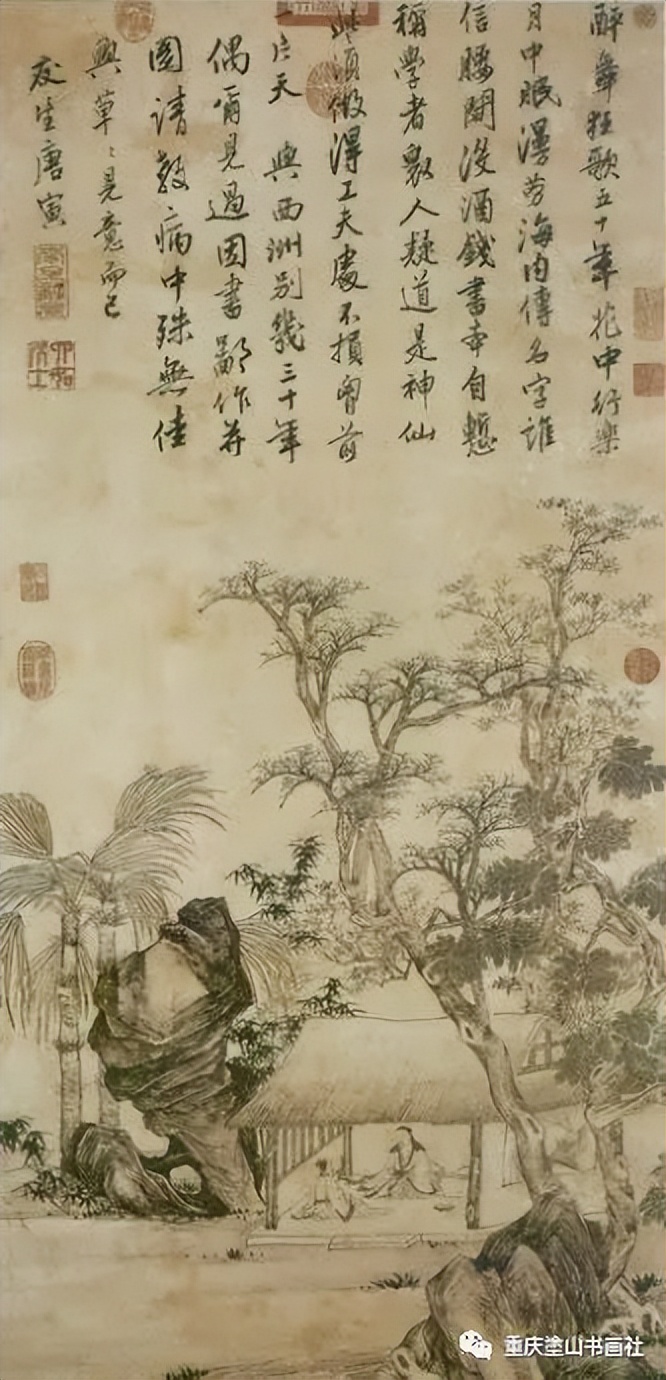 醉舞狂歌五十年花中行樂
月中眠漫勞海內傳名字誰
信腰間沒酒錢書本自慙
稱學者眾人疑道是神仙
些須做得工夫處不損胷前
一片天 與西洲別幾三十年
偶爾見過因書鄙作并
圖請教病中殊無佳
興草〻見意而已
友生唐寅
南京解元
六如居士
重庆塗山书画社